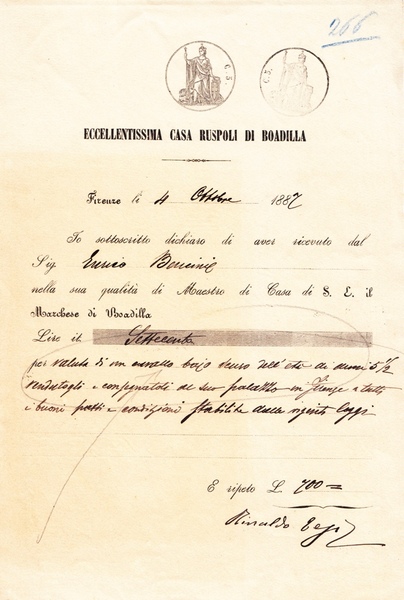 266
C. S.
C. S.
ECCELLENTISSIMA CASA RUSPOLI DI BOADILLA
Firenze li 4 Ottobre 1887
Io sottoscritto dichiaro di aver ricevuto dal
Sig. Enrico
nella sua qualità di Maestro di Casa di S. E. il
Marchese di Boadilla
Lire it. Settecento
per valuta di un cavallo bajo scuro dell'età di anni 5 1/2
vendutogli e consegnatoli al suo palazzo in Firenze a tutti
i buoni patti e condizioni stabilite dalle vigenti leggi
E ripeto L. 700=
Rinaldo